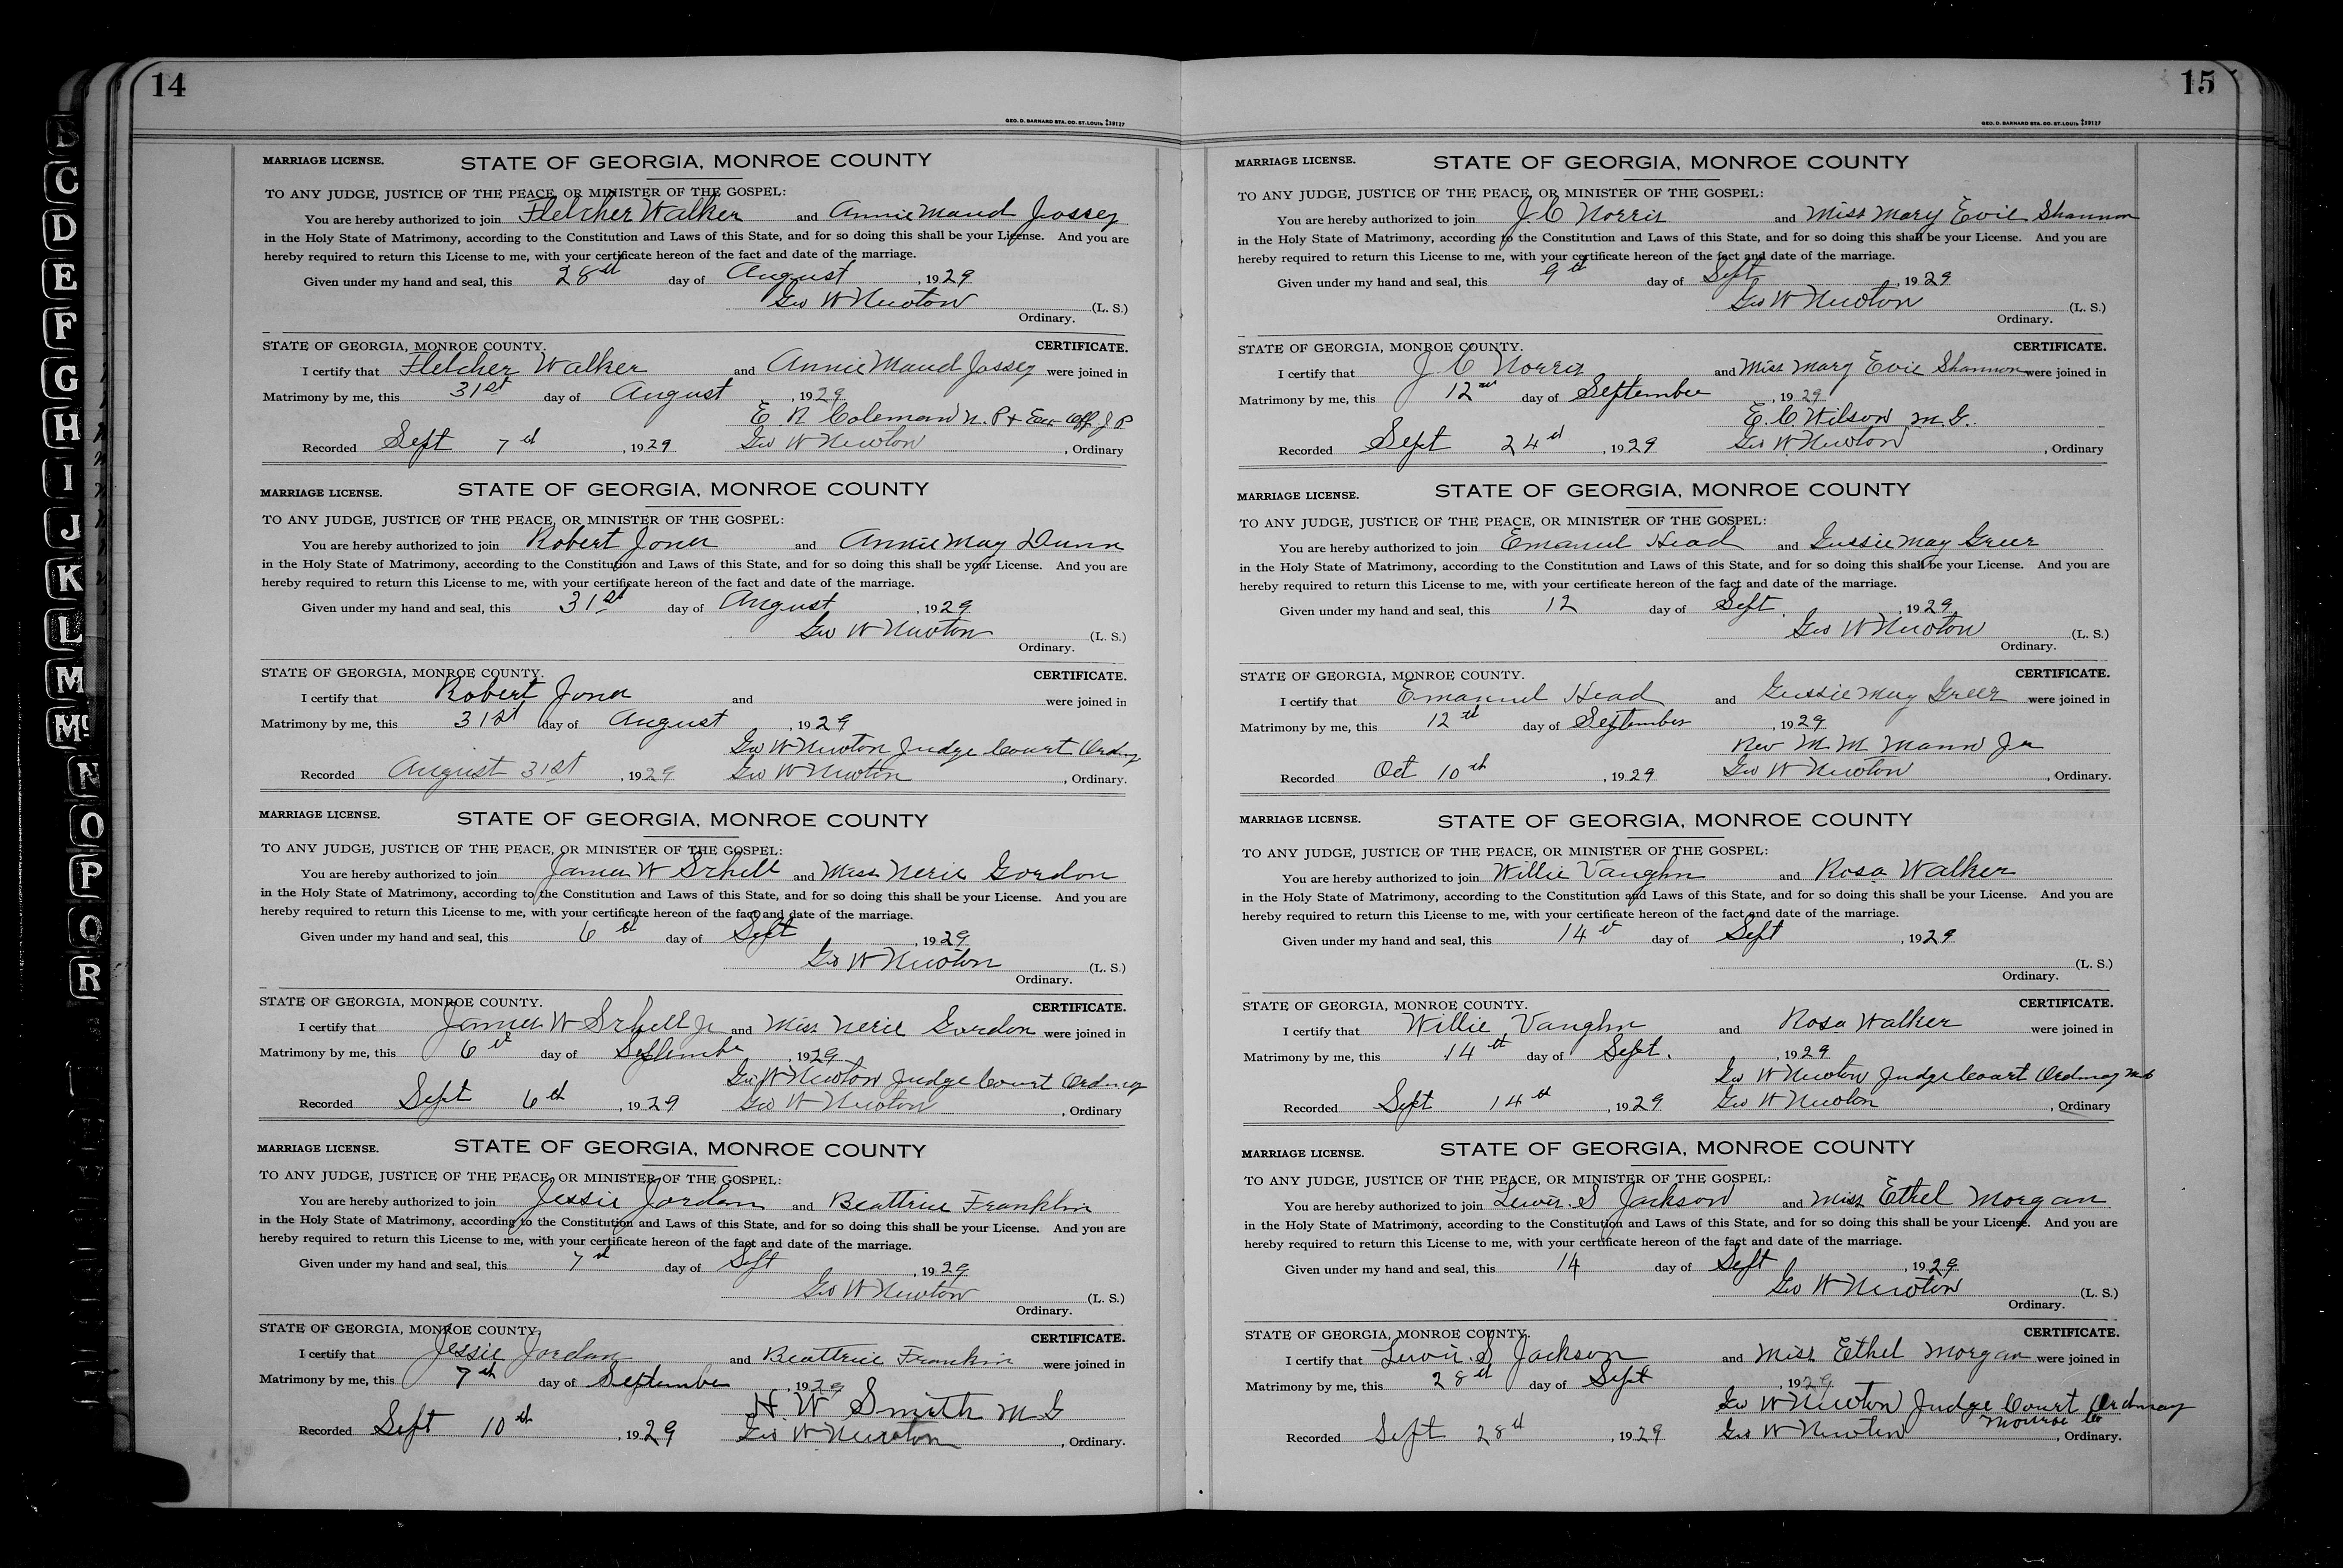 14
GEO. D. BARNARD STA. CO. ST. LOUIS
MARRIAGE LICENSE. STATE OF GEORGIA, MONROE COUNTY
TO ANY JUDGE, JUSTICE OF THE PEACE, OR MINISTER OF THE GOSPEL:
You are hereby authorized to join Fletcher Walker and Annie Maud Jossey
in the Holy State of Matrimony, according to the Constitution and Laws of this State, and for so doing this shall be your License. And you are
hereby required to return this License to me, with your certificate hereon of the fact and date of the marriage.
Given under my hand and seal, this 28th day of August, 1929
Geo W Newton (L. S.)
Ordinary.
STATE OF GEORGIA, MONROE COUNTY. CERTIFICATE.
I certify that Fletcher Walker and Annie Maud Jossey were joined in
Matrimony by me, this 31st day of August, 1929
E. R. Coleman N. P. & Ex Off J P
Recorded Sept 7th, 1929 Geo W Newton, Ordinary
MARRIAGE LICENSE. STATE OF GEORGIA, MONROE COUNTY
TO ANY JUDGE, JUSTICE OF THE PEACE, OR MINISTER OF THE GOSPEL:
You are hereby authorized to join Robert Jones and Annie May Dunn
in the Holy State of Matrimony, according to the Constitution and Laws of this State, and for so doing this shall be your License. And you are
hereby required to return this License to me, with your certificate hereon of the fact and date of the marriage.
Given under my hand and seal, this 31st day of August, 1929
Geo W Newton (L. S.)
Ordinary.
STATE OF GEORGIA, MONROE COUNTY. CERTIFICATE.
I certify that Robert Jones and were joined in
Matrimony by me, this 31st day of August, 1929
Geo W Newton Judge Court Ordinary
Recorded August 31st, 1929 Geo W Newton, Ordinary.
MARRIAGE LICENSE. STATE OF GEORGIA, MONROE COUNTY
TO ANY JUDGE, JUSTICE OF THE PEACE, OR MINISTER OF THE GOSPEL:
You are hereby authorized to join James W and Miss Nerie Gordon
in the Holy State of Matrimony, according to the Constitution and Laws of this State, and for so doing this shall be your License. And you are
hereby required to return this License to me, with your certificate hereon of the fact and date of the marriage.
Given under my hand and seal, this 6th day of Sept, 1929
Geo W Newton (L. S.)
Ordinary.
STATE OF GEORGIA, MONROE COUNTY. CERTIFICATE.
I certify that James W Jr and Miss Nerie Gordon were joined in
Matrimony by me, this 6th day of Septembe, 1929
Geo W Newton Judge Court Ordinary
Recorded Sept 6th, 1929 Geo W Newton, Ordinary
MARRIAGE LICENSE. STATE OF GEORGIA, MONROE COUNTY
TO ANY JUDGE, JUSTICE OF THE PEACE, OR MINISTER OF THE GOSPEL:
You are hereby authorized to join Jessie Jordan and Beattrice Franklin
in the Holy State of Matrimony, according to the Constitution and Laws of this State, and for so doing this shall be your License. And you are
hereby required to return this License to me, with your certificate hereon of the fact and date of the marriage.
Given under my hand and seal, this 7th day of Sept, 1929
Geo W Newton (L. S.)
Ordinary.
STATE OF GEORGIA, MONROE COUNTY. CERTIFICATE.
I certify that Jessie Jordan and Beattrice Franklin were joined in
Matrimony by me, this 7th day of September, 1929
H W Smith M G
Recorded Sept 10th, 1929 Geo W Newton, Ordinary.
15
GEO. D. BARNARD STA. CO. ST. LOUIS
MARRIAGE LICENSE. STATE OF GEORGIA, MONROE COUNTY
TO ANY JUDGE, JUSTICE OF THE PEACE, OR MINISTER OF THE GOSPEL:
You are hereby authorized to join J. C Norris and Miss Mary Evie Shannon
in the Holy State of Matrimony, according to the Constitution and Laws of this State, and for so doing this shall be your License. And you are
hereby required to return this License to me, with your certificate hereon of the fact and date of the marriage.
Given under my hand and seal, this 9th day of Sept, 1929
Geo W Newton (L. S.)
Ordinary.
STATE OF GEORGIA, MONROE COUNTY. CERTIFICATE.
I certify that J C Norris and Miss Mary Evie Shannon were joined in
Matrimony by me, this 12 day of September, 1929
E. C. Wilson M. G.
Recorded Sept 24th, 1929 Geo W Newton, Ordinary
MARRIAGE LICENSE. STATE OF GEORGIA, MONROE COUNTY
TO ANY JUDGE, JUSTICE OF THE PEACE, OR MINISTER OF THE GOSPEL:
You are hereby authorized to join Emanuel Head and Gussie May Greer
in the Holy State of Matrimony, according to the Constitution and Laws of this State, and for so doing this shall be your License. And you are
hereby required to return this License to me, with your certificate hereon of the fact and date of the marriage.
Given under my hand and seal, this 12 day of Sept., 1929
Geo W Newton (L. S.)
Ordinary.
STATE OF GEORGIA, MONROE COUNTY. CERTIFICATE.
I certify that Emanuel Head and Gussie May Greer were joined in
Matrimony by me, this 12th day of September, 1929
Rev M. M Mann Jr
Recorded Oct 10th, 1929 Geo W Newton, Ordinary.
MARRIAGE LICENSE. STATE OF GEORGIA, MONROE COUNTY
TO ANY JUDGE, JUSTICE OF THE PEACE, OR MINISTER OF THE GOSPEL:
You are hereby authorized to join Willie Vaughn and Rosa Walker
in the Holy State of Matrimony, according to the Constitution and Laws of this State, and for so doing this shall be your License. And you are
hereby required to return this License to me, with your certificate hereon of the fact and date of the marriage.
Given under my hand and seal, this 14th day of Sept, 1929
(L. S.)
Ordinary.
STATE OF GEORGIA, MONROE COUNTY. CERTIFICATE.
I certify that Willie Vaughn and Rosa Walker were joined in
Matrimony by me, this 14th day of Sept., 1929
Geo W Newton Judge Court Ordinary M C
Recorded Sept 14th, 1929 Geo W Newton, Ordinary
MARRIAGE LICENSE. STATE OF GEORGIA, MONROE COUNTY
TO ANY JUDGE, JUSTICE OF THE PEACE, OR MINISTER OF THE GOSPEL:
You are hereby authorized to join Lewis. S Jackson and Miss Ethel Morgan
in the Holy State of Matrimony, according to the Constitution and Laws of this State, and for so doing this shall be your License. And you are
hereby required to return this License to me, with your certificate hereon of the fact and date of the marriage.
Given under my hand and seal, this 14 day of Sept, 1929
Geo W Newton (L. S.)
Ordinary.
STATE OF GEORGIA, MONROE COUNTY. CERTIFICATE.
I certify that Lewis. S Jackson and Miss Ethel Morgan were joined in
Matrimony by me, this 28th day of Sept, 1929
Geo W Newton Judge Court Ordinary
Monroe Co
Recorded Sept 28th, 1929 Geo W Newton, Ordinary.
C
D
E
F
G
H
I
J
K
L
M
Mc
N
O
P
Q
R